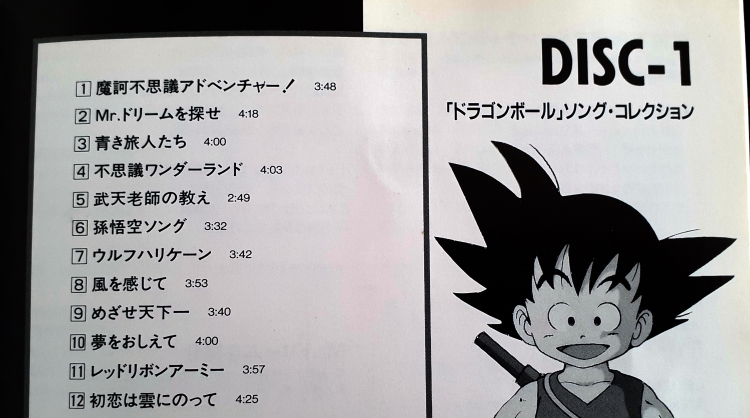 DISC-1
「ドラゴンボール」ソング・コレクション
1 魔訶不思議アドベンチャー! 3:48
2 Mr.ドリームを探せ 4:18
3 青き旅人たち 4:00
4 不思議ワンダーランド 4:03
5 武天老師の教え 2:49
6 孫悟空ソング 3:32
7 ウルフハリケーン 3:42
8 風を感じて 3:53
9 めざせ天下一 3:40
10 夢をおしえて 4:00
11 レッドリボンアーミー 3:57
12 初恋は雲にのって 4:25